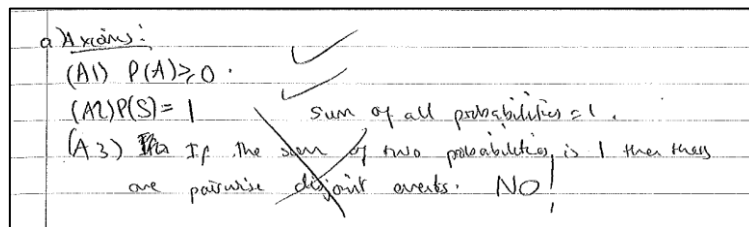 a) Axioms:
(A1) P(A) ≥ 0.
(A2) P(S) = 1 sum of all probabilities = 1.
(A3) If the sum of two probabilities is 1 then they
are pairwise disjoint events. NO!